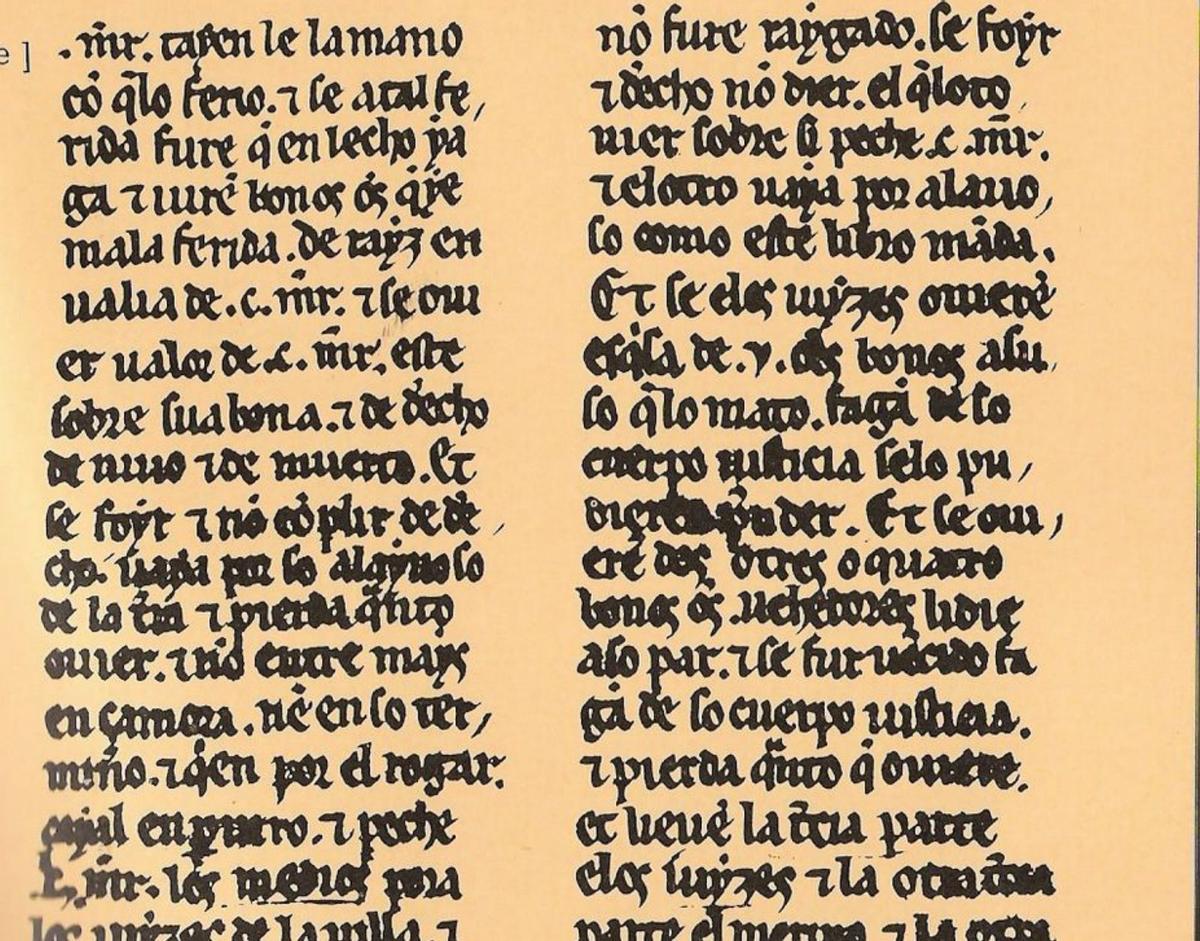 e ]
.mr̄. tayen le la mano
cō q̄lo ferio. ⁊ se atal fe,
rida fure q̇ en lecho ya
ga ⁊ iurē bonos ōs q̇ ye
mala ferida. de rayz en
ualia de .c. mr̄. ⁊ se oui
er ualor de .c. mr̄. este
sobre sua bona. ⁊ de d̄echo
de uiuo ⁊ de muerto. Et
se foyr ⁊ nō cōplir de de,
cho. uaya por so aleyuoso
de la t̄rra ⁊ pierda q̄nto
ouier. ⁊ nō entre mays
en çamora. nē en so ter,
mino. ⁊ q̇en por el rogar.
en
. ⁊ peche
.c. mr̄. los medios pora
los iuyzes de la uilla. ⁊
nō fure raygado. se foyr
⁊ d̄echo nō dier. el q̄lo to
uier sobre si peche .c. mr̄.
⁊ el otro uaya por alauo,
so como este libro māda.
Et se elos iuyzes ouierē
esq̇sa de .v. ōēs bonos aliu
so q̄lo mato. fagā de so
cuerpo iusticia selo pu,
dierē p̄nder. Et se oui,
erē dos otres o quatro
bonos ōs. uehedores lidie
aso par. ⁊ se fur uēcido fa
gā de so cuerpo iusticia.
⁊ pierda q̄nto q̇ ouiere.
et lieuē la t̄cia parte
elos iuyzes ⁊ la otra t̄cia
parte el merino ⁊ la otra